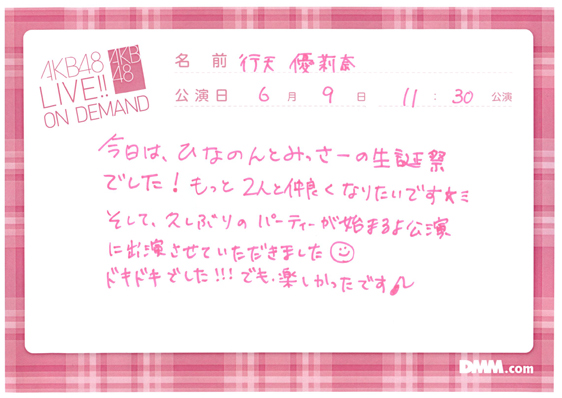 AKB48
LIVE!!
ON DEMAND
AKB
48
名前 行天 優莉奈
公演日 6月 9日 11:30 公演
今日は、ひなのんとみっさーの生誕祭
でした!もっと2人と仲良くなりたいです★ミ
そして、久しぶりのパーティーが始まるよ公演
に出演させていただきました☺
ドキドキでした!!!でも、楽しかったです♪
DMM.com